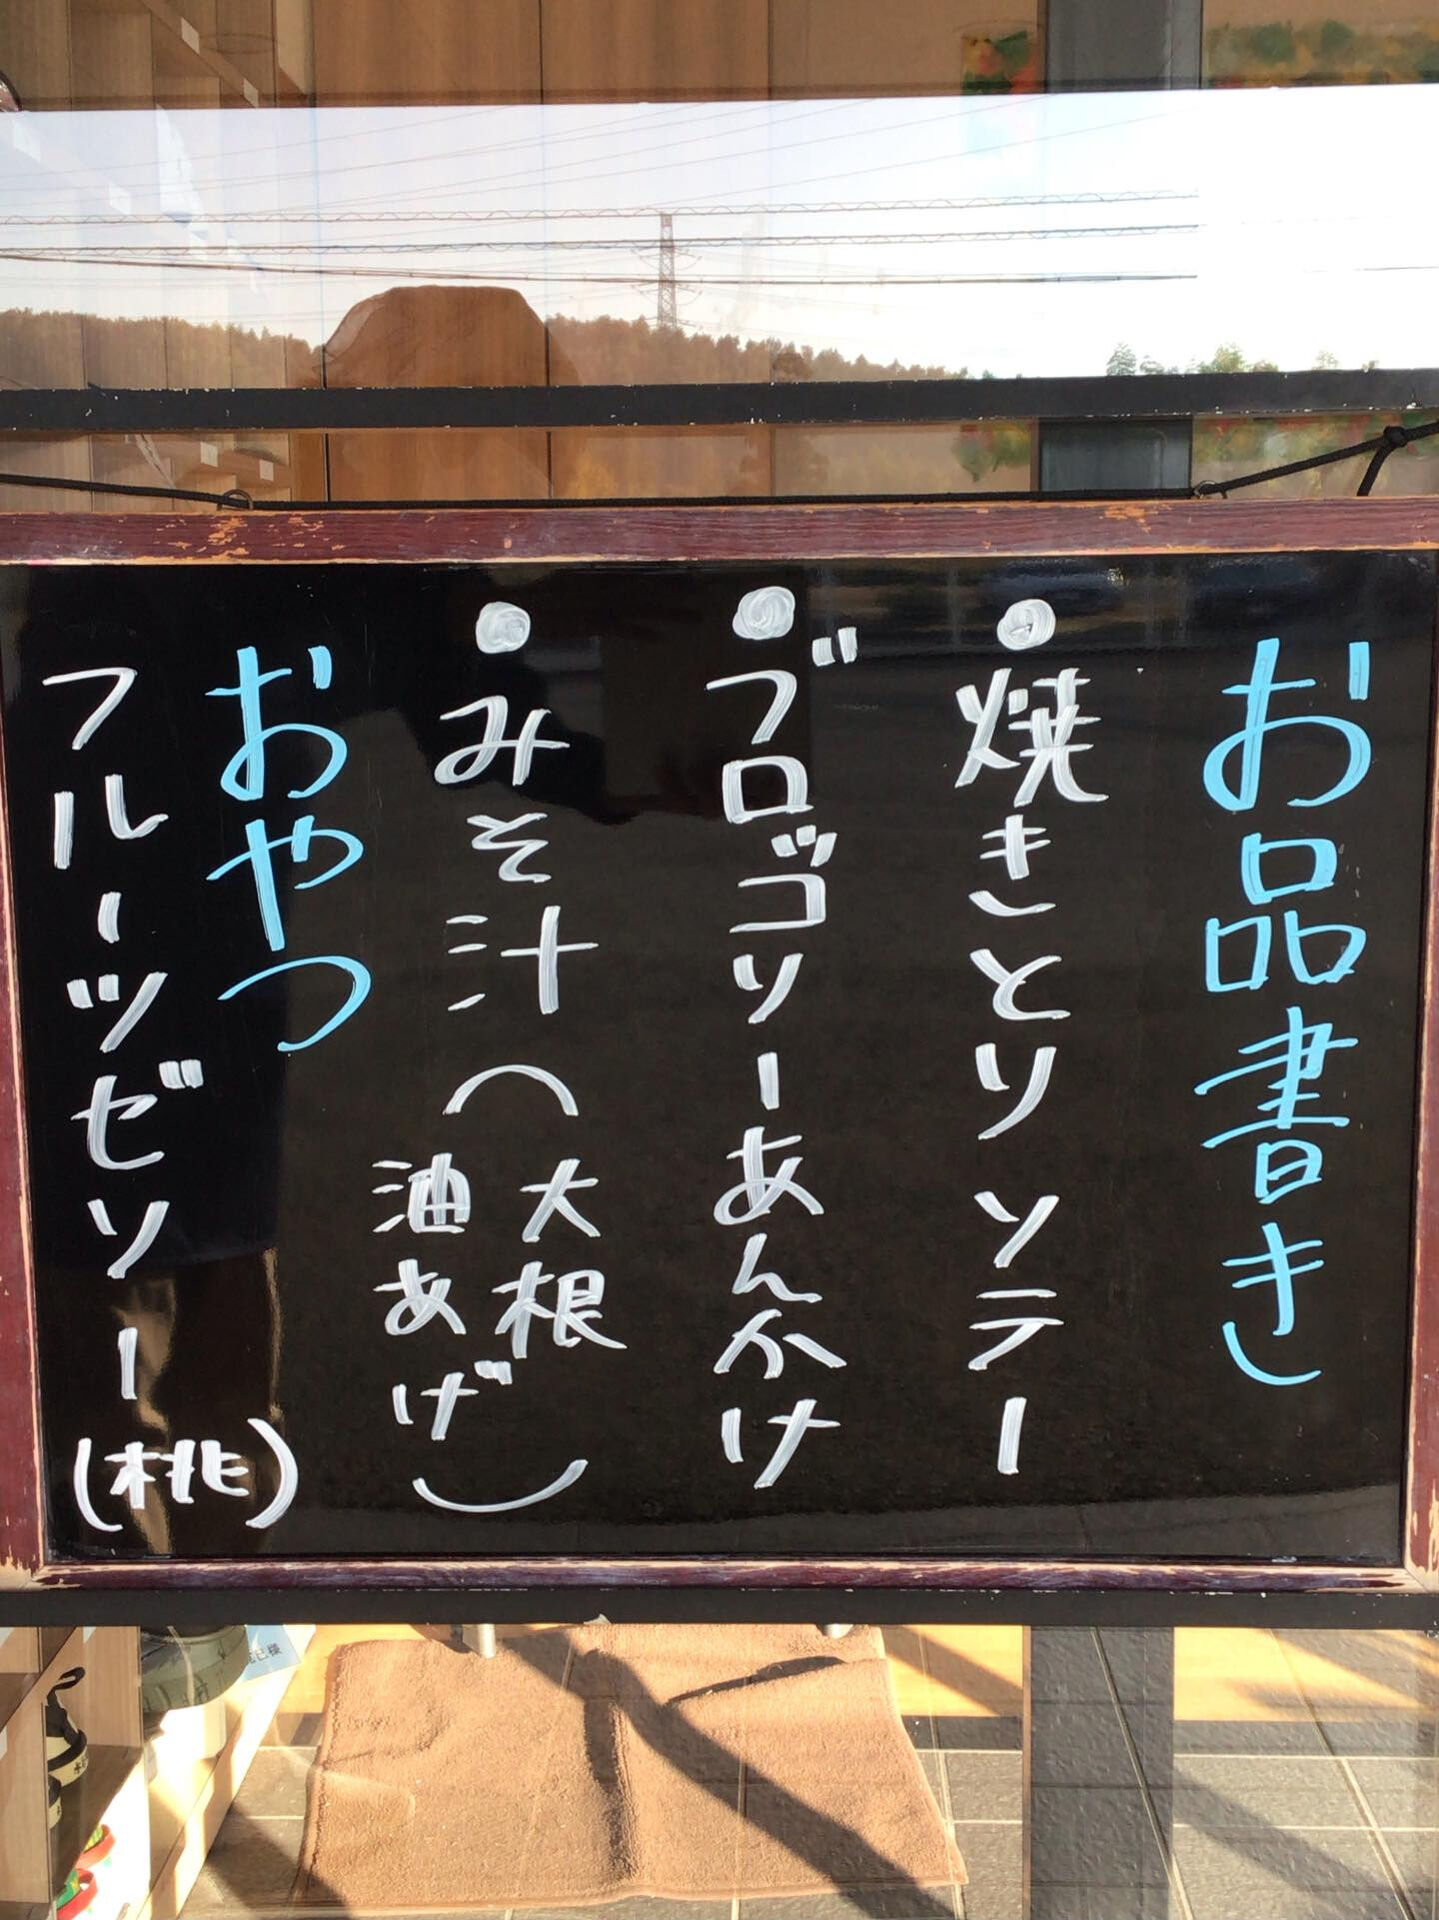 お品書き
焼きとりソテー
ブロッコリーあんかけ
みそ汁(大根
油あげ)
おやつ
フルーツゼリー(桃)